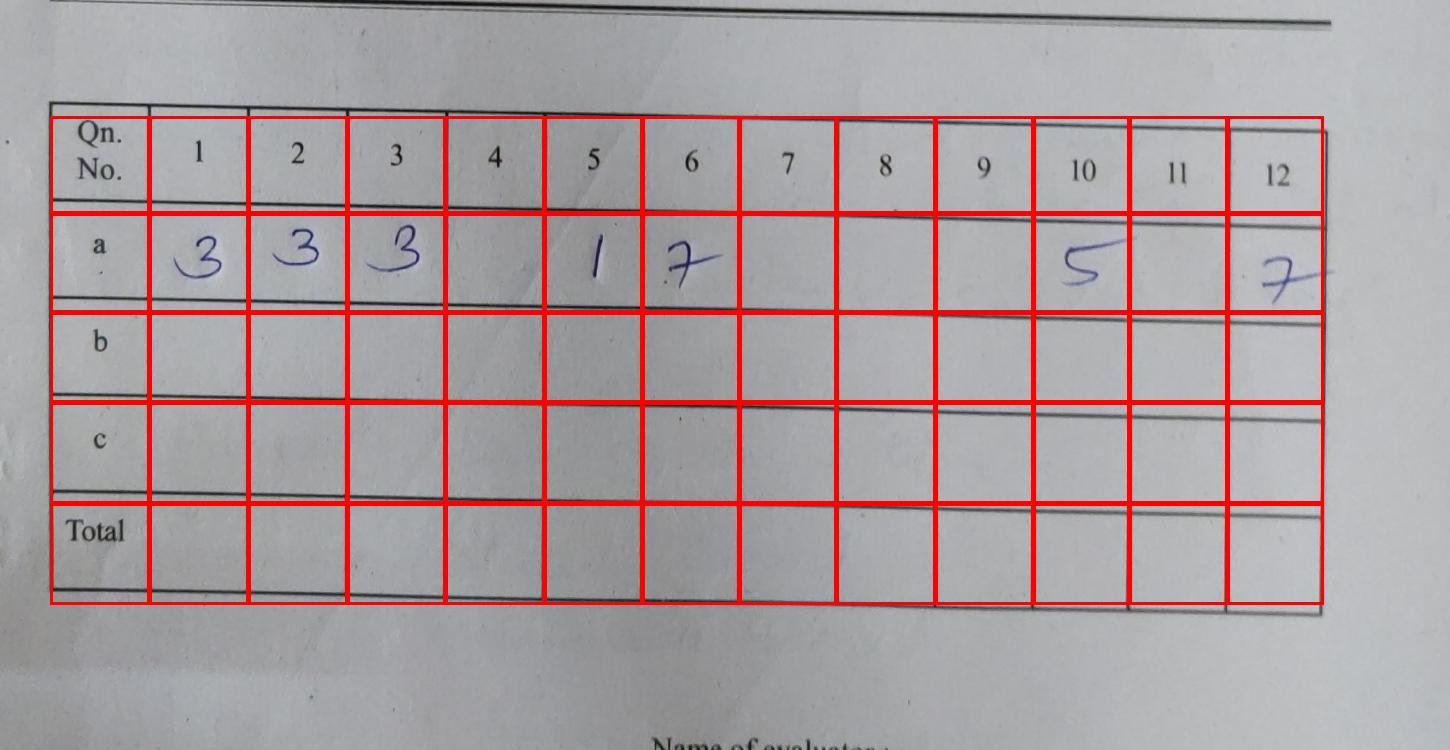 Qn. No. 1 2 3 4 5 6 7 8 9 10 11 12
a 3 3 3 1 7 5 7
b
c
Total
Name of evaluator :